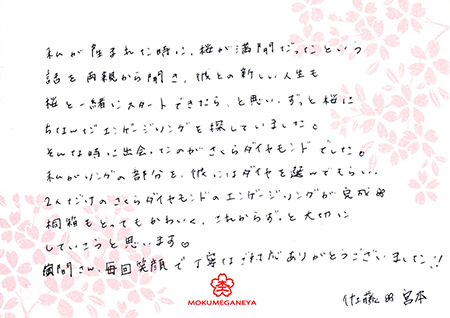 私が産まれた時に、桜が満開だったという
話を両親から聞き、彼との新しい人生も
桜と一緒にスタートできたら、と思い、ずっと桜に
ちなんだエンゲージリングを探していました。
そんな時に出会ったのがさくらダイヤモンドでした。
私がリングの部分を、彼にはダイヤを選んでもらい、
2人だけのさくらダイヤモンドのエンゲージリングが完成
桐箱もとってもかわいく、これからずっと大切に
していこうと思います♡
さん、毎回笑顔で丁寧な ありがとうございました!!
MOKUMEGANEYA
佐藤 宮本